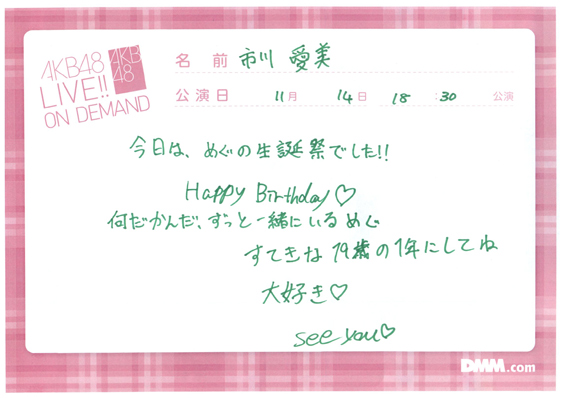 AKB48
LIVE!!
ON DEMAND
AKB
48
名前 市川 愛美
公演日 11月 14日 18:30 公演
今日は、めぐの生誕祭でした!!
Happy Birthday♡
何だかんだ、ずっと一緒にいるめぐ
すてきな19歳の1年にしてね
大好き♡
see you♡
DMM.com